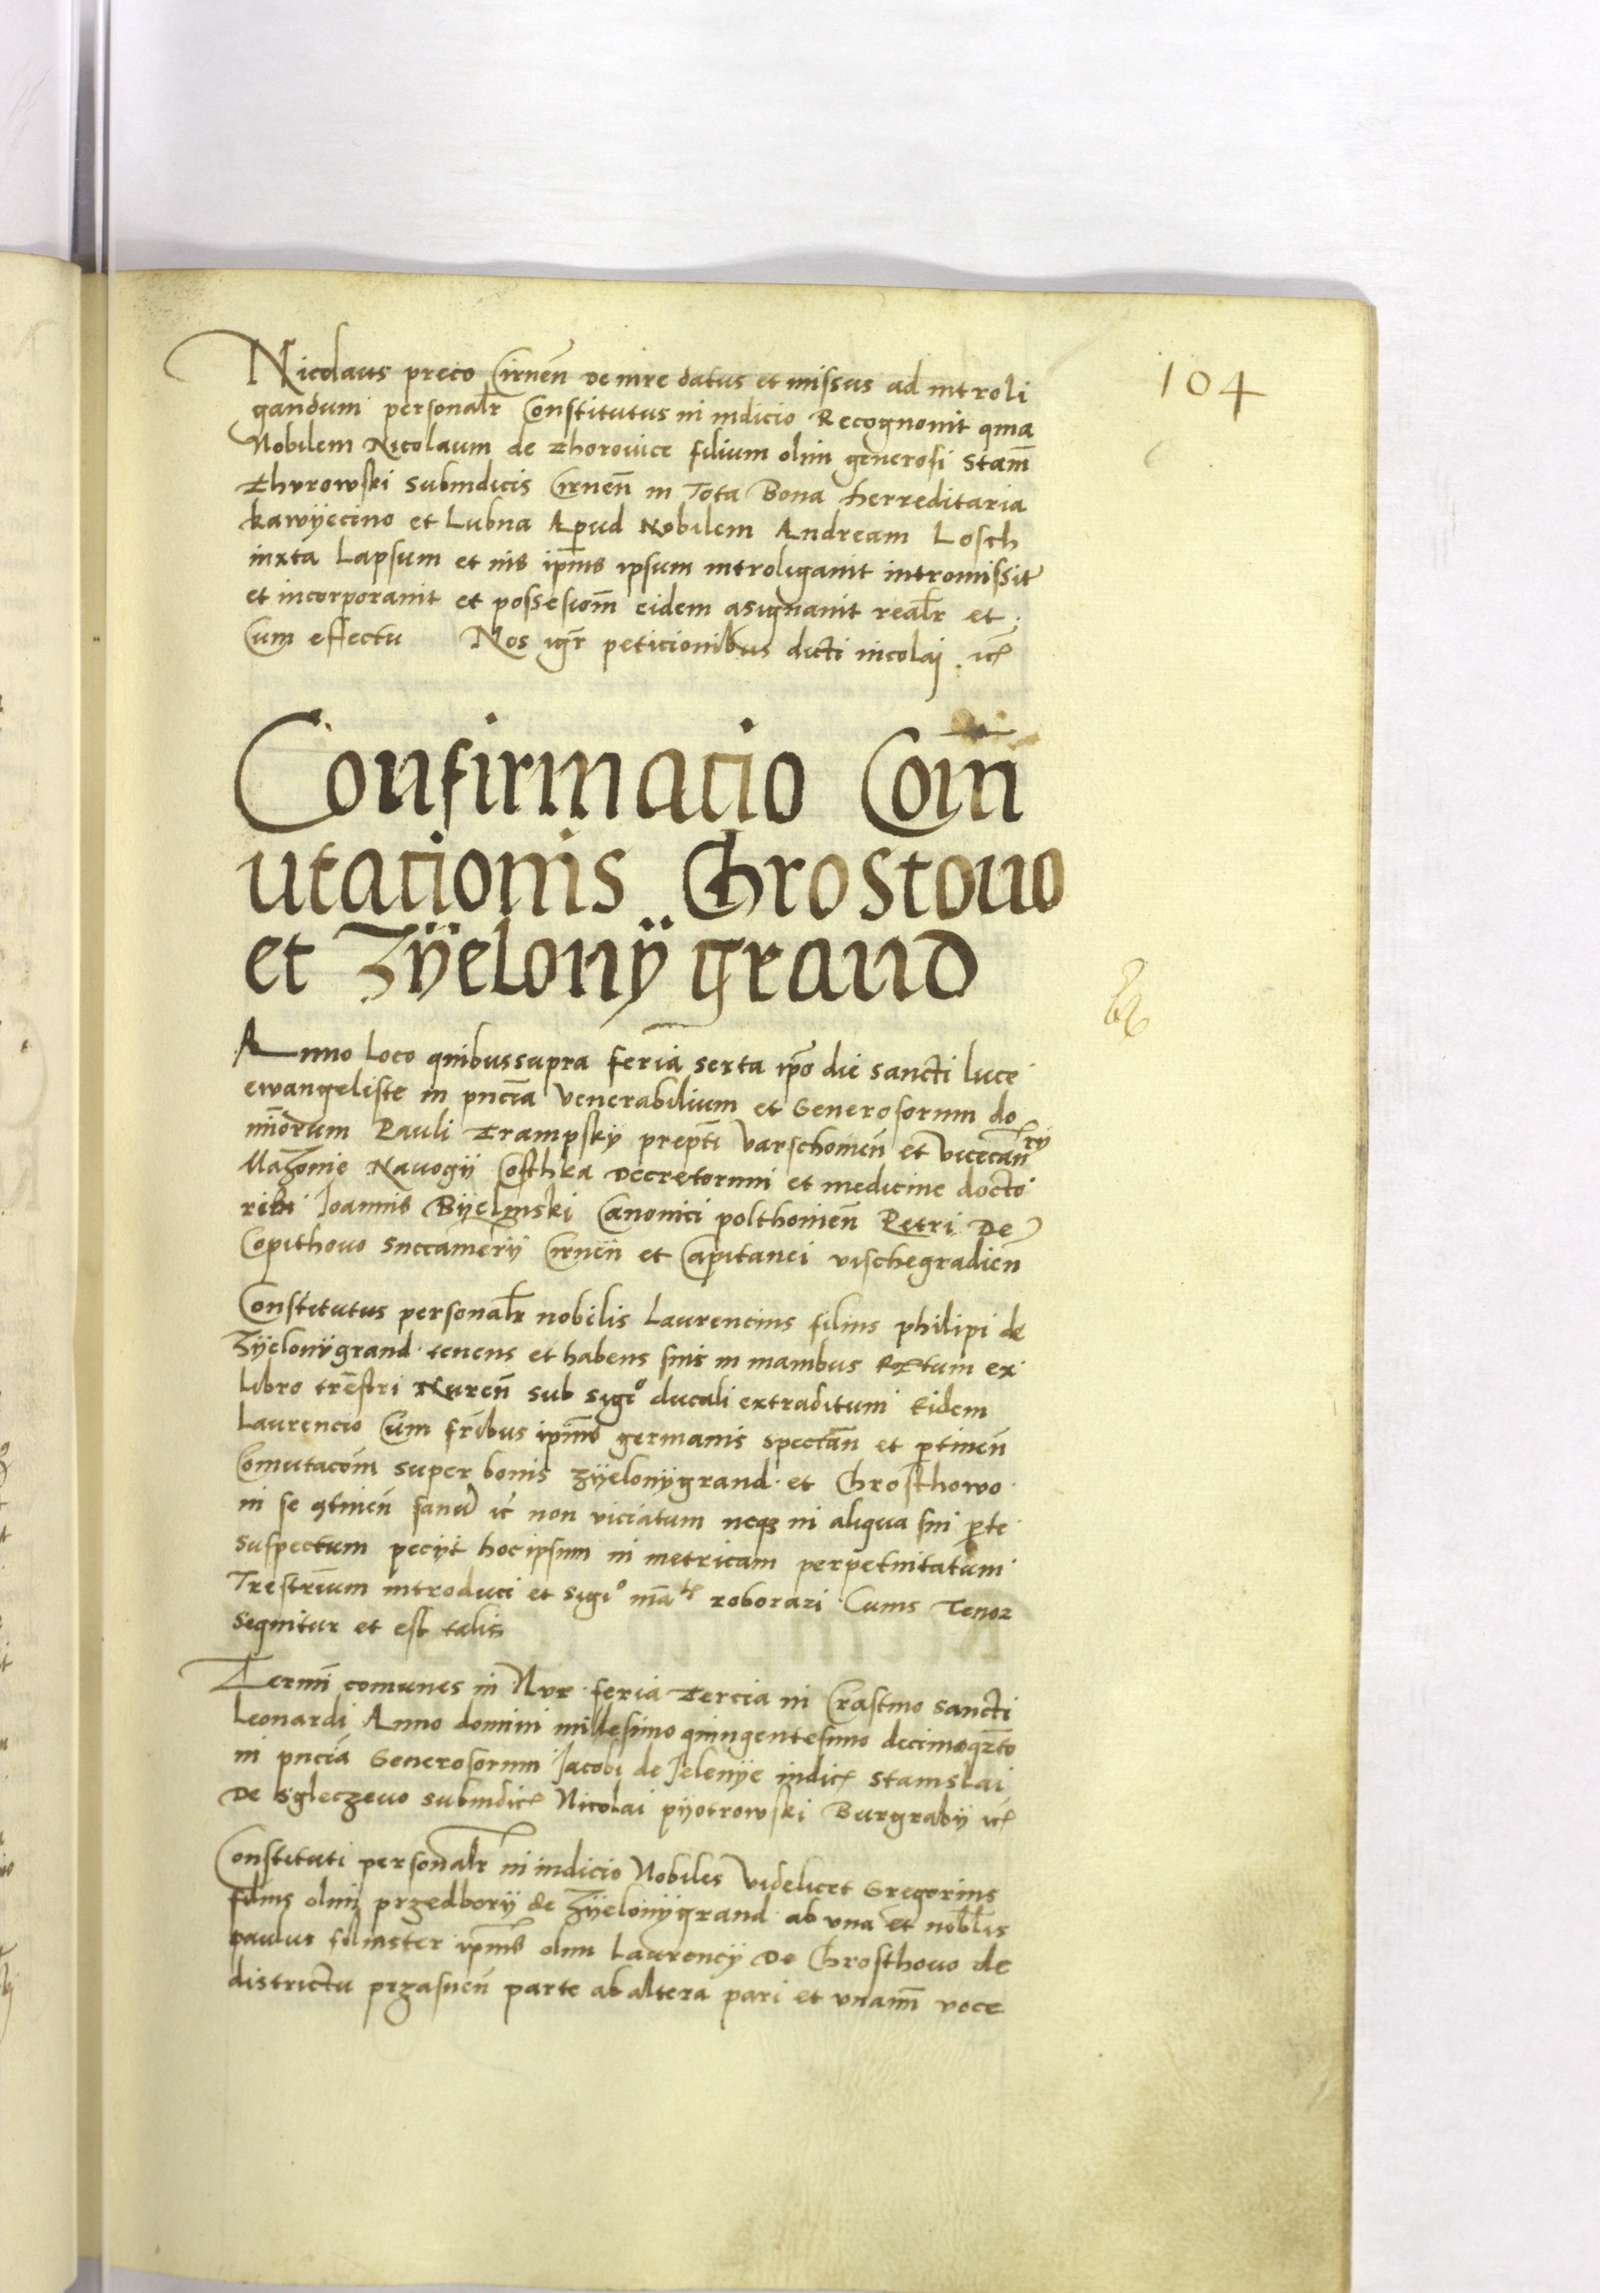 104
Nicolaus preco Cirnen̄ De iure datus et missus ad introli
gandum personalr̄ Constitutus in iudicio Recognouit qma
Nobilem Nicolaum de Zhorovice filium olim generosi Stanī
Zhvrowski Subiudicis Cirnen̄ in Tota Bona herreditaria
kawÿecino et Lubna Apud Nobilem Andream Losch
iuxta Lapsum et iūs ip̄ius ipsum introligauit intromissit
et incorporauit et possesiom̄ eidem asignauit realr̄ et
Cum effectu Nos igr̄ peticionibus dicti nicolai ꝛc̄
Confirmacio Com̄
utacionis Grostouo
et Zÿelonÿ grand
Anno Loco quibus supra feria sexta ip̄o die sancti luce
ewangeliste in pn̄cia Venerabilium et Generosorum do
mīorum Pauli Trampskÿ prepti Varschouien̄ et Vicecan̄rÿ
Mazouie Navogÿ Coschka Decretorum et medicine docto
Joannis Bÿelinski Canonici polthouien̄ Petri De
Copithouo Succamerÿ Cirnen̄ et Capitanei vischegradien̄
Constitutus personalr̄ nobilis Laurencius filius philipi de
Zÿelonÿgrand tenens et habens suis in manibus Rx̄tum ex
Libro trēstri Nuren̄ sub sigio ducali extraditum Eidem
Laurencio Cum frībus ip̄ius germanis spectan̄ et ꝑtinen̄
Comutacom̄ super bonis zÿelonÿgrand et Grosthowo
in se ꝯtinen̄ sanū ꝛc̄ non viciatum neqꝫ in aliqua sui ꝑte
suspectum peciÿt hoc ipsum in metricam perpetuitatum
Trestrium introduci et sigio roborari Cuius Tenor
sequitur et est talis
Termī comunes in Nvr feria Tercia in Crastino sancti
Leonardi Anno domini millesimo quingentesimo decimo qr̄to
in pn̄cia Generosorum Jacobi de Jelenÿe iudicꝭ Stanislai
De Sgleczeuo subiudicꝭ Nicolai pÿotrowski Burgrabÿ ꝛcꝭ
Constituti personalr̄ in iudicio Nobiles Videlicet Gregorius
filius olim przedborÿ de Zÿelonÿgrand ab vna et nobl̄is
paulus filiaster ip̄ius olim Laurencÿ De Grosthouo de
districtu przasnen̄ parte ab altera pari et vnanī voce